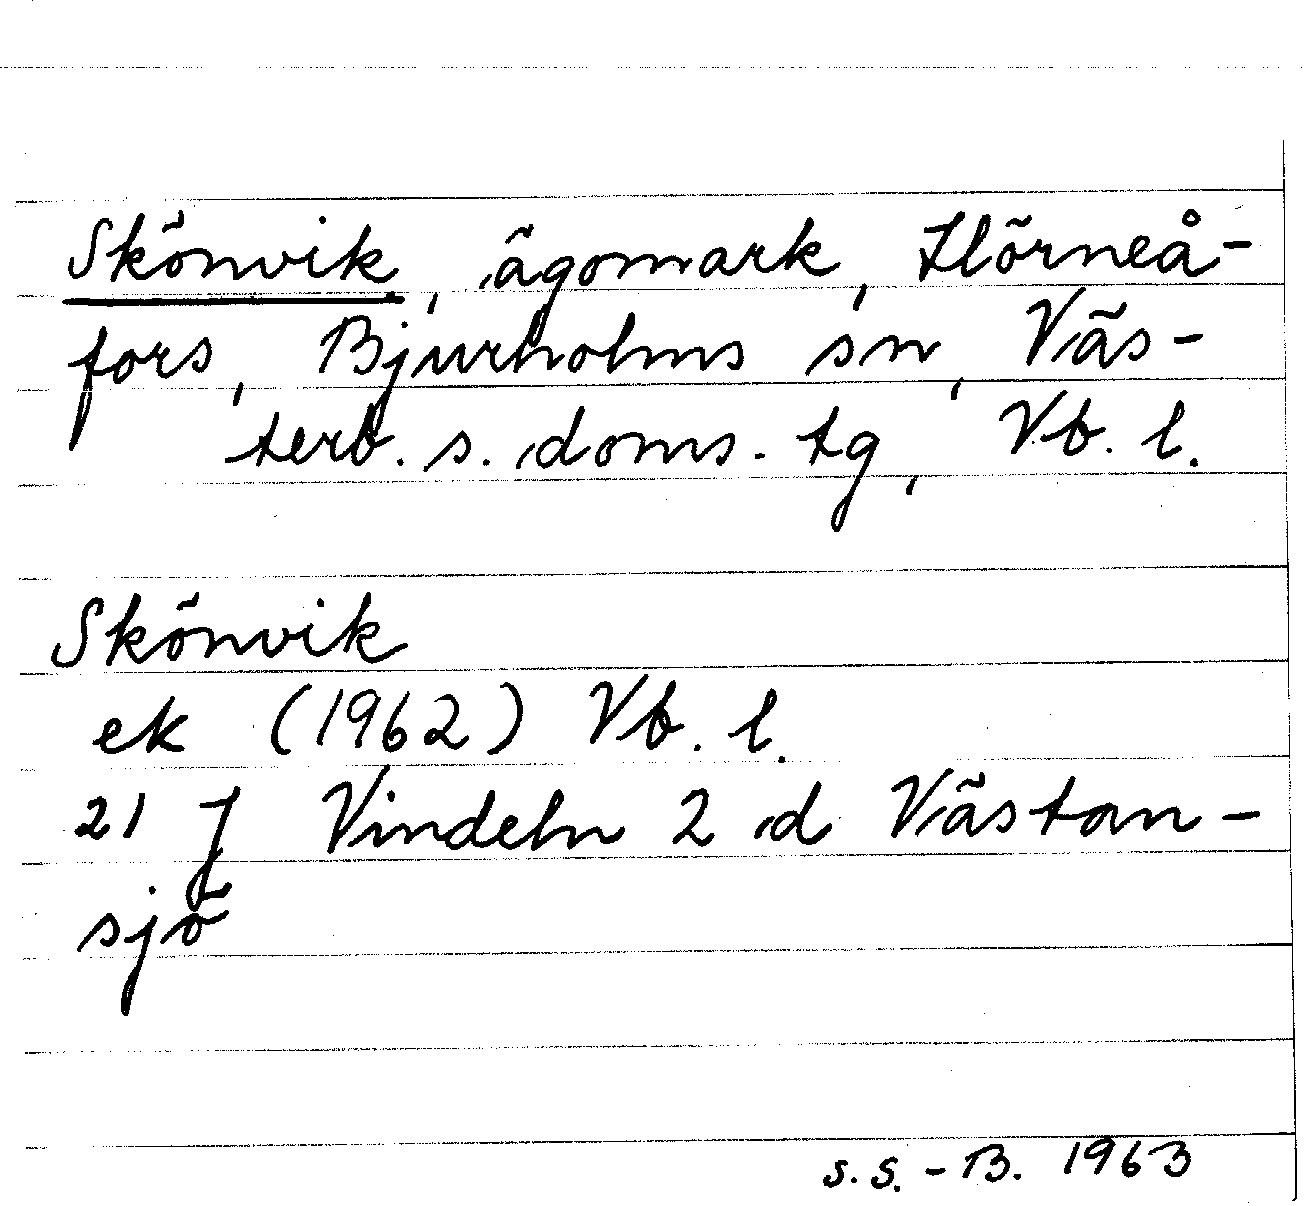 Skönvik, ägomark, Hörneå-
fors, Bjurholms sn, Väs-
terb. s. doms. tg, Vb. l.
Skönvik
ek (1962) Vb. l.
21 J Vindeln 2 d Västan-
sjö
S.S.-B. 1963